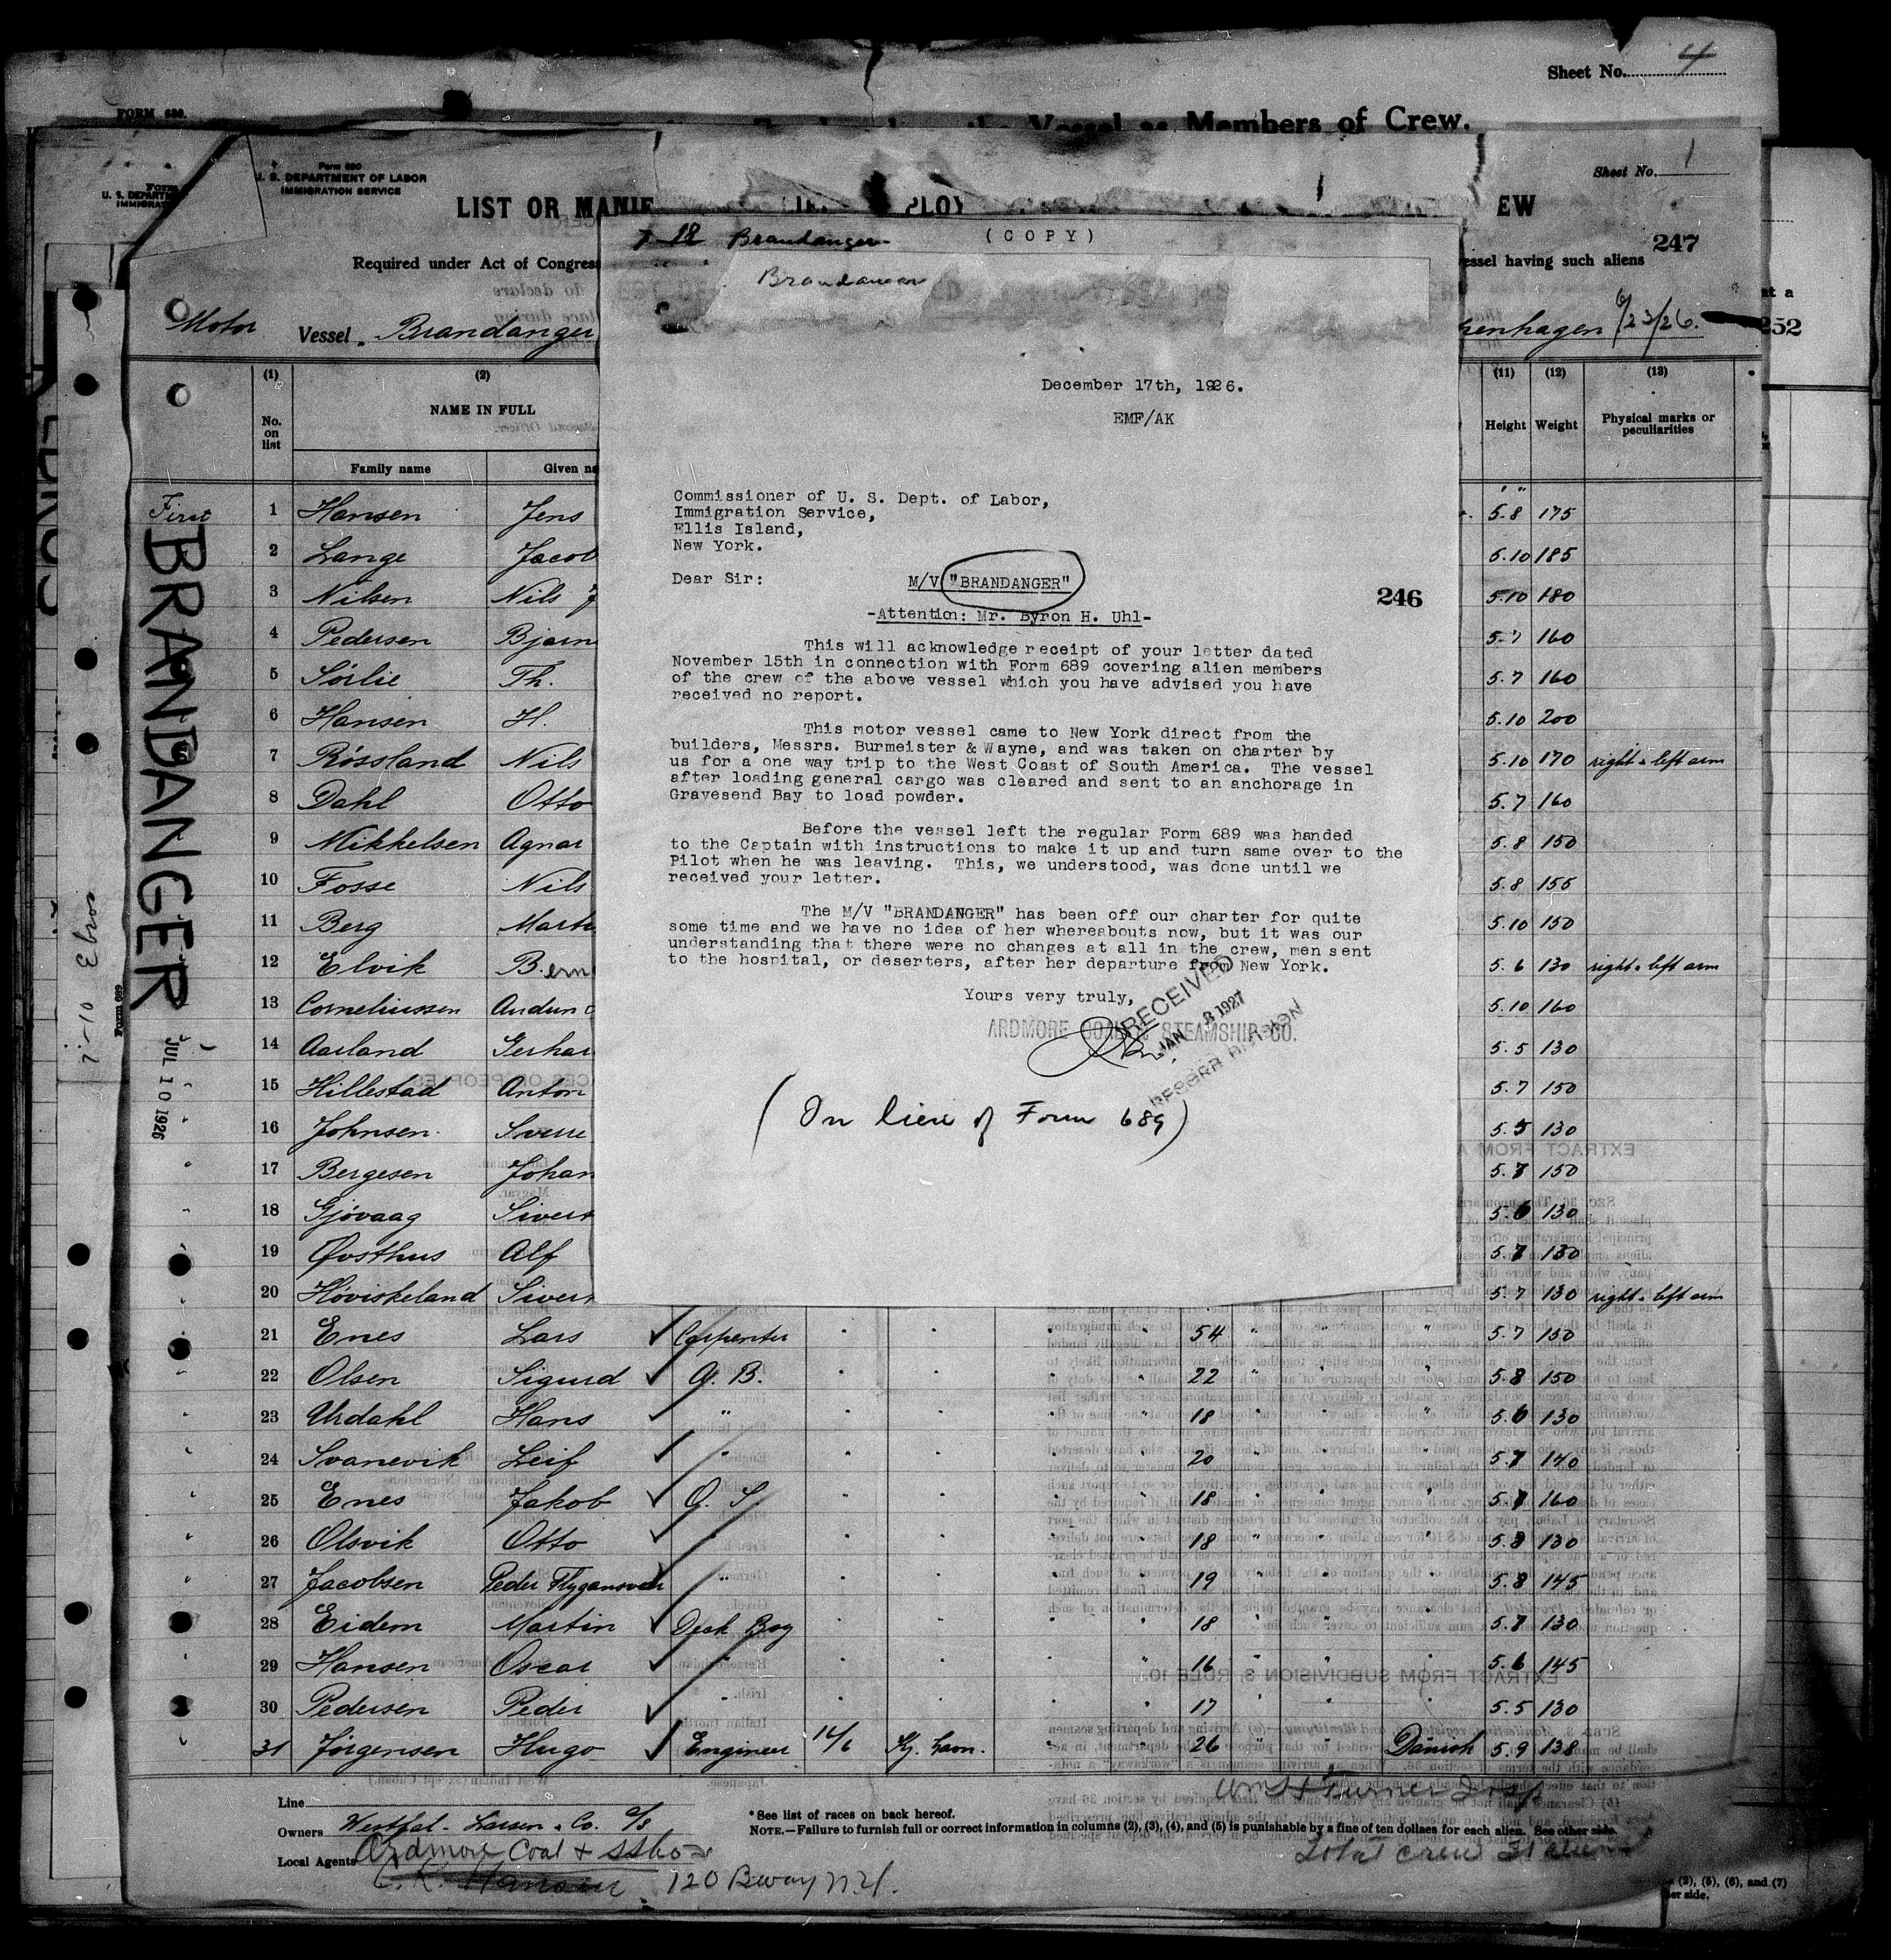 Sheet No. 4
FORM 689.
the Vessel as Members of Crew.
Form 680
U. S. DEPARTMENT OF LABOR
IMMIGRATION SERVICE
Sheet No. 1
LIST OR MANIF
EW
247
Required under Act of Congress
essel having such aliens
Motor Vessel Brandanger
penhagen 6/23/26.
252
(1) (2) (11) (12) (13)
No. on list
NAME IN FULL
Height Weight Physical marks or peculiarities
Family name Given na
First
BRANDANGER
JUL 10 1926
7-10 Ebros
Form 689
7-12 Brandanger
(COPY)
Brandanger
December 17th, 1926.
EMF/AK
Commissioner of U. S. Dept. of Labor,
Immigration Service,
Ellis Island,
New York.
Dear Sir: M/V "BRANDANGER"
246
-Attention: Mr. Byron H. Uhl-
This will acknowledge receipt of your letter dated
November 15th in connection with Form 689 covering alien members
of the crew of the above vessel which you have advised you have
received no report.
This motor vessel came to New York direct from the
builders, Messrs. Burmeister & Wayne, and was taken on charter by
us for a one way trip to the West Coast of South America. The vessel
after loading general cargo was cleared and sent to an anchorage in
Gravesend Bay to load powder.
Before the vessel left the regular Form 689 was handed
to the Captain with instructions to make it up and turn same over to the
Pilot when he was leaving. This, we understood, was done until we
received your letter.
The M/V "BRANDANGER" has been off our charter for quite
some time and we have no idea of her whereabouts now, but it was our
understanding that there were no changes at all in the crew, men sent
to the hospital, or deserters, after her departure from New York.
Yours very truly,
ARDMORE COAL & STEAMSHIP CO.
RECEIVED
JAN 3 1927
RECORD DIVISION
(In lieu of Form 689)
1 Hansen Jens 5.8 175
2 Lange Jacob 5.10 185
3 Nilsen Nils J 5.10 180
4 Pedersen Bjarn 5.7 160
5 Sörlie Th. 5.7 160
6 Hansen H. 5.10 200
7 Røssland Nils 5.10 170 right & left arm
8 Dahl Otto 5.7 160
9 Mikkelsen Agnar 5.8 150
10 Fosse Nils 5.8 155
11 Berg Mart 5.10 150
12 Elvik Bern 5.6 130 right & left arm
13 Corneliussen Audun 5.10 160
14 Aarland Gerhar 5.5 130
15 Hillestad Anton 5.7 150
16 Johnsen Sverre 5.5 130
17 Bergesen Johan 5.7 150
18 Gjøvaag Sivert 5.6 130
19 Øvsthus Alf 5.7 130
20 Høviskeland Sivert 5.7 130 right & left arm
21 Enes Lars Carpenter " " " " 54 " " " 5.7 150
22 Olsen Sigurd A. B. " " " " 22 " " " 5.8 150
23 Urdahl Hans " " " " " 18 " " " 5.6 130
24 Svanevik Leif " " " " " 20 " " " 5.7 140
25 Enes Jakob O. S. " " " " 18 " " " 5.7 160
26 Olsvik Otto " " " " " 18 " " " 5.8 130
27 Jacobsen Peder Flygansvær " " " " " 19 " " " 5.8 145
28 Eidem Martin Deck Boy " " " " 18 " " " 5.7 130
29 Hansen Oscar " " " " " 16 " " " 5.6 145
30 Pedersen Peder " " " " " 17 " " " 5.5 130
31 Jørgensen Hugo Engineer 14/6 Kj. havn. " " 26 " " Danish 5.9 138
Line
Owners Westfal-Larsen & Co. A/S
Local Agents Ardmore Coal & SS Co
C. K. Hansen 120 Bway N.Y.
* See list of races on back hereof.
NOTE.—Failure to furnish full or correct information in columns (2), (3), (4), and (5) is punishable by a fine of ten dollars for each alien. See other side.
Wm Turner Insp
Total crew 31 aliens
(2), (5), (6), and (7)
er side.